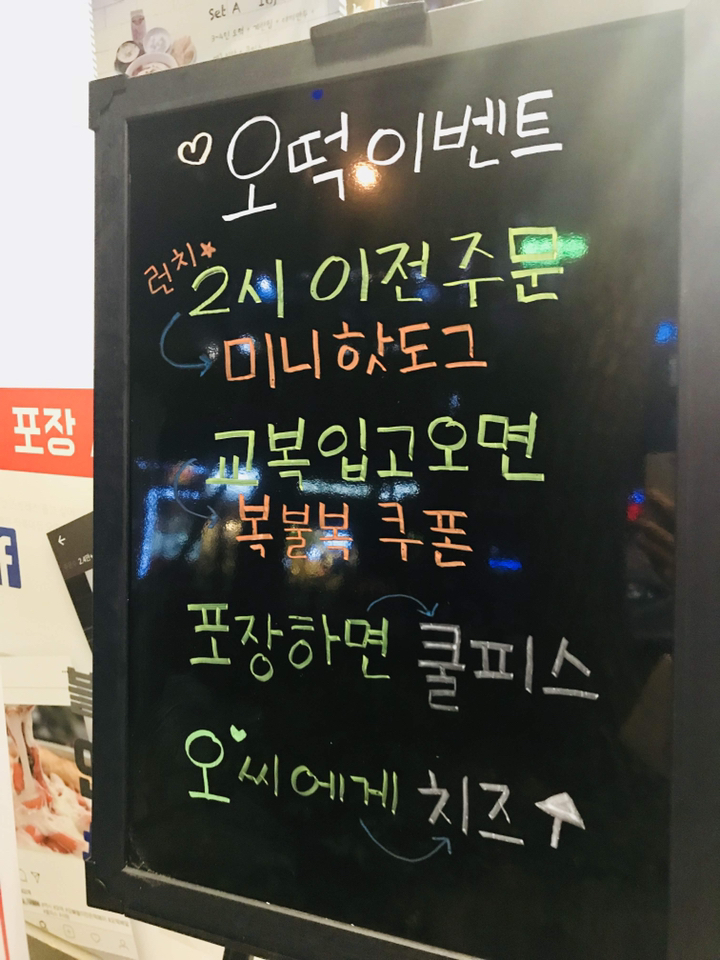 Set A
♡오떡이벤트
런치★
2시 이전 주문
미니핫도그
교복입고오면
복불복 쿠폰
포장하면 쿨피스
오♥씨에게 치즈
포장
f